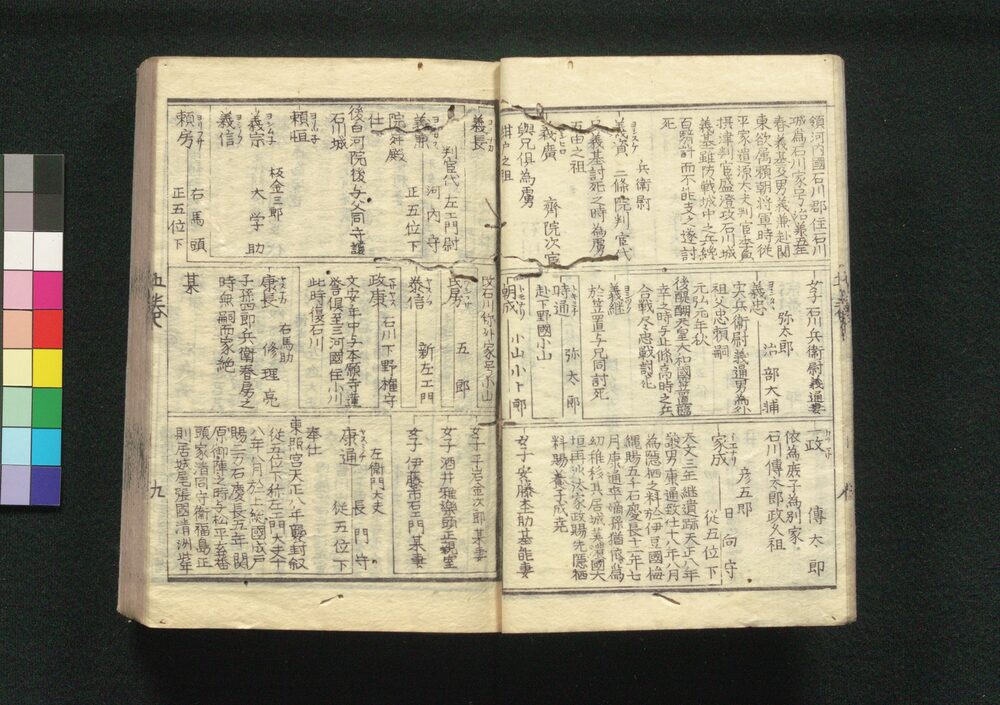 領河内國石川郡住石川
城為石川家号治兼五年
春義基及男義兼赴関
東欲属頼朝将軍時従
平家遣源大夫判官季貞
摂津判官盛澄攻石川城
義基雖防戦城中之兵終
百騎計而不能支之遂討
死
兵衛尉
義資 二條院判官代
兄義基討死之時為虜
石田之祖
義廣 齊院次官
與兄倶為虜
女子石川兵衛尉義通妻
弥太郎
義忠 治部大輔
実兵衛尉義通男為外
祖父忠頼嗣
元弘元年秋
後醍醐天皇大和國笠置臨
幸之時与北條高時之兵
合戦尽忠戦討死
義継
於笠置与兄同討死
時通 弥太郎
赴下野國小山
朝成 小山小四郎
政 傳太郎
依為庶子為別家
石川傳太郎政久祖
彦五郎
家成 日向守
従五位下
天文三年継遺跡天正八年
譲男康通致仕十八年八月
為隠栖之料於伊豆國梅
縄賜五千石慶長十二年七
月康通卒嫡孫猶依為
幼稚移其居城美濃國大
垣再汰家政賜先隠栖
料賜養子成尭
女子安藤杢助基能妻
義長
判官代左エ門尉
義兼 河内守
正五位下
院昇殿
仕
後白河院後与父同守護
石川城
頼恒
板金三郎
義宗 大学助
義信
頼房 右馬頭
正五位下
改石川称外家号小山
氏房 五郎
泰信 新左エ門
政康 石川下野権守
文安年中与本願寺蓮
誉倶至三河國住小川
此時復石川
右馬助
康長 修理亮
子孫四郎兵衛春房之
時無嗣而家絶
某
女子平岩金次郎某妻
女子酒井雅樂頭正親室
女子伊藤市右エ門某妻
左衛門大夫
康通 長門守
従五位下
奉仕
東照宮天正八年襲封叙
従五位下称左エ門大夫十
八年八月於上総國成戸
賜二万石慶長五年関
原御陣之時与松平玄蕃
頭家清同守衛福島正
則居城尾張國清洲其年
五巻
九